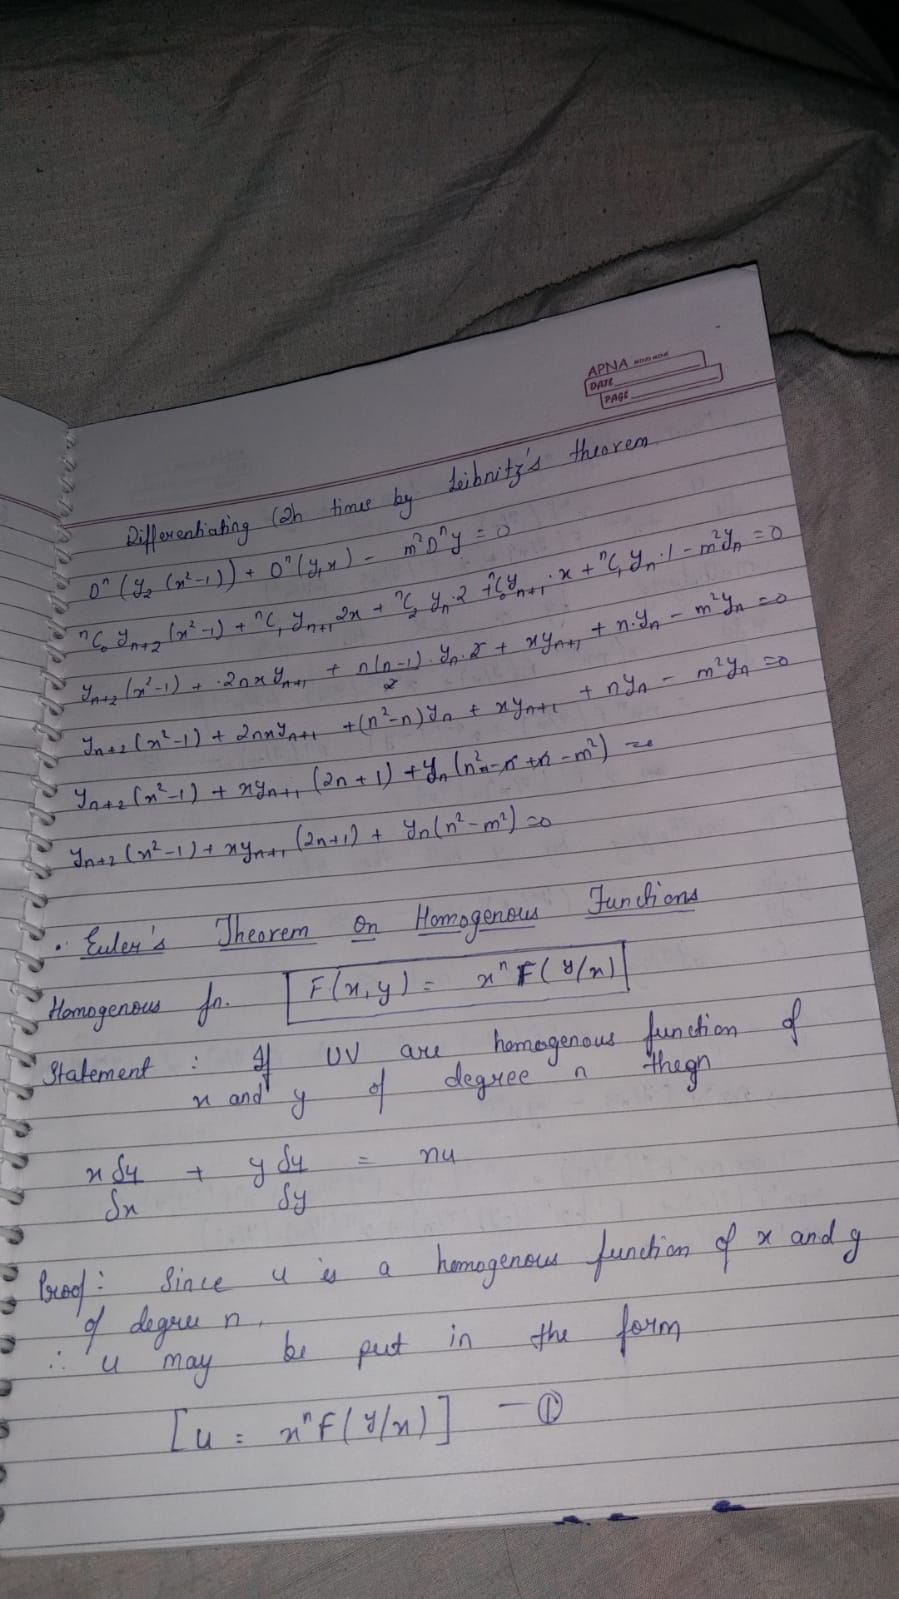 APNA
DATE
PAGE
Differentiating (2) n times by Leibnitz's theorem
Dⁿ(y₂(x²-1)) + Dⁿ(y₁x) - m²Dⁿy = 0
ⁿC₀ yₙ₊₂(x²-1) + ⁿC₁ yₙ₊₁ 2x + ⁿC₂ yₙ·2 + ⁿC₀yₙ₊₁·x + ⁿC₁ yₙ·1 - m²yₙ = 0
yₙ₊₂(x²-1) + 2nxyₙ₊₁ + n(n-1)/2 · yₙ·2 + xyₙ₊₁ + n·yₙ - m²yₙ = 0
yₙ₊₂(x²-1) + 2nxyₙ₊₁ + (n²-n)yₙ + xyₙ₊₁ + nyₙ - m²yₙ = 0
yₙ₊₂(x²-1) + xyₙ₊₁(2n+1) + yₙ(n²-n+n-m²) = 0
yₙ₊₂(x²-1) + xyₙ₊₁(2n+1) + yₙ(n²-m²) = 0
• Euler's Theorem On Homogenous Functions
Homogenous fn. F(x,y) = xⁿF(y/x)
Statement : If UV are homogenous function of
x and y of degree n thegn
x δu/δx + y δu/δy = nu
Proof: Since u is a homogenous function of x and y
of degree n.
∴ u may be put in the form
[u = xⁿF(y/x)] — ①